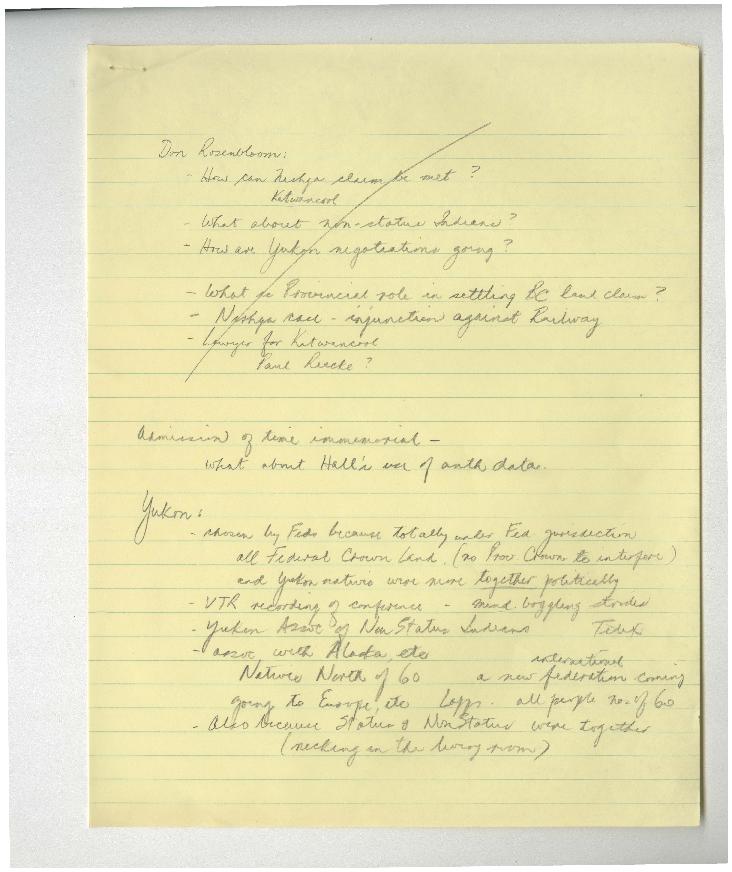 Don Rosenbloom:
- How can Nishga claim be met ?
Kitwancool
- What about non-status Indians?
- How are Yukon negotiations going?
- What is Provincial role in settling BC land claim?
- Nishga case - injunction against Railway
- Lawyer for Kitwancool
Paul Reecke ?
Admission of time immemorial -
what about Hall's use of anth data.
Yukon:
- chosen by Feds because totally under Fed jurisdiction
all Federal Crown Land. (no Prov Crown to interfere)
and Yukon natives were more together politically
- VTR recording of conference - mind boggling
- Yukon Assoc of Non Status Indians
- assoc with Alaska, etc
international
Natives North of 60 a new federation coming
going to Europe, etc Lapps. all people no. of 60
- Also because Status & Non Status were together
(necking in the living room)